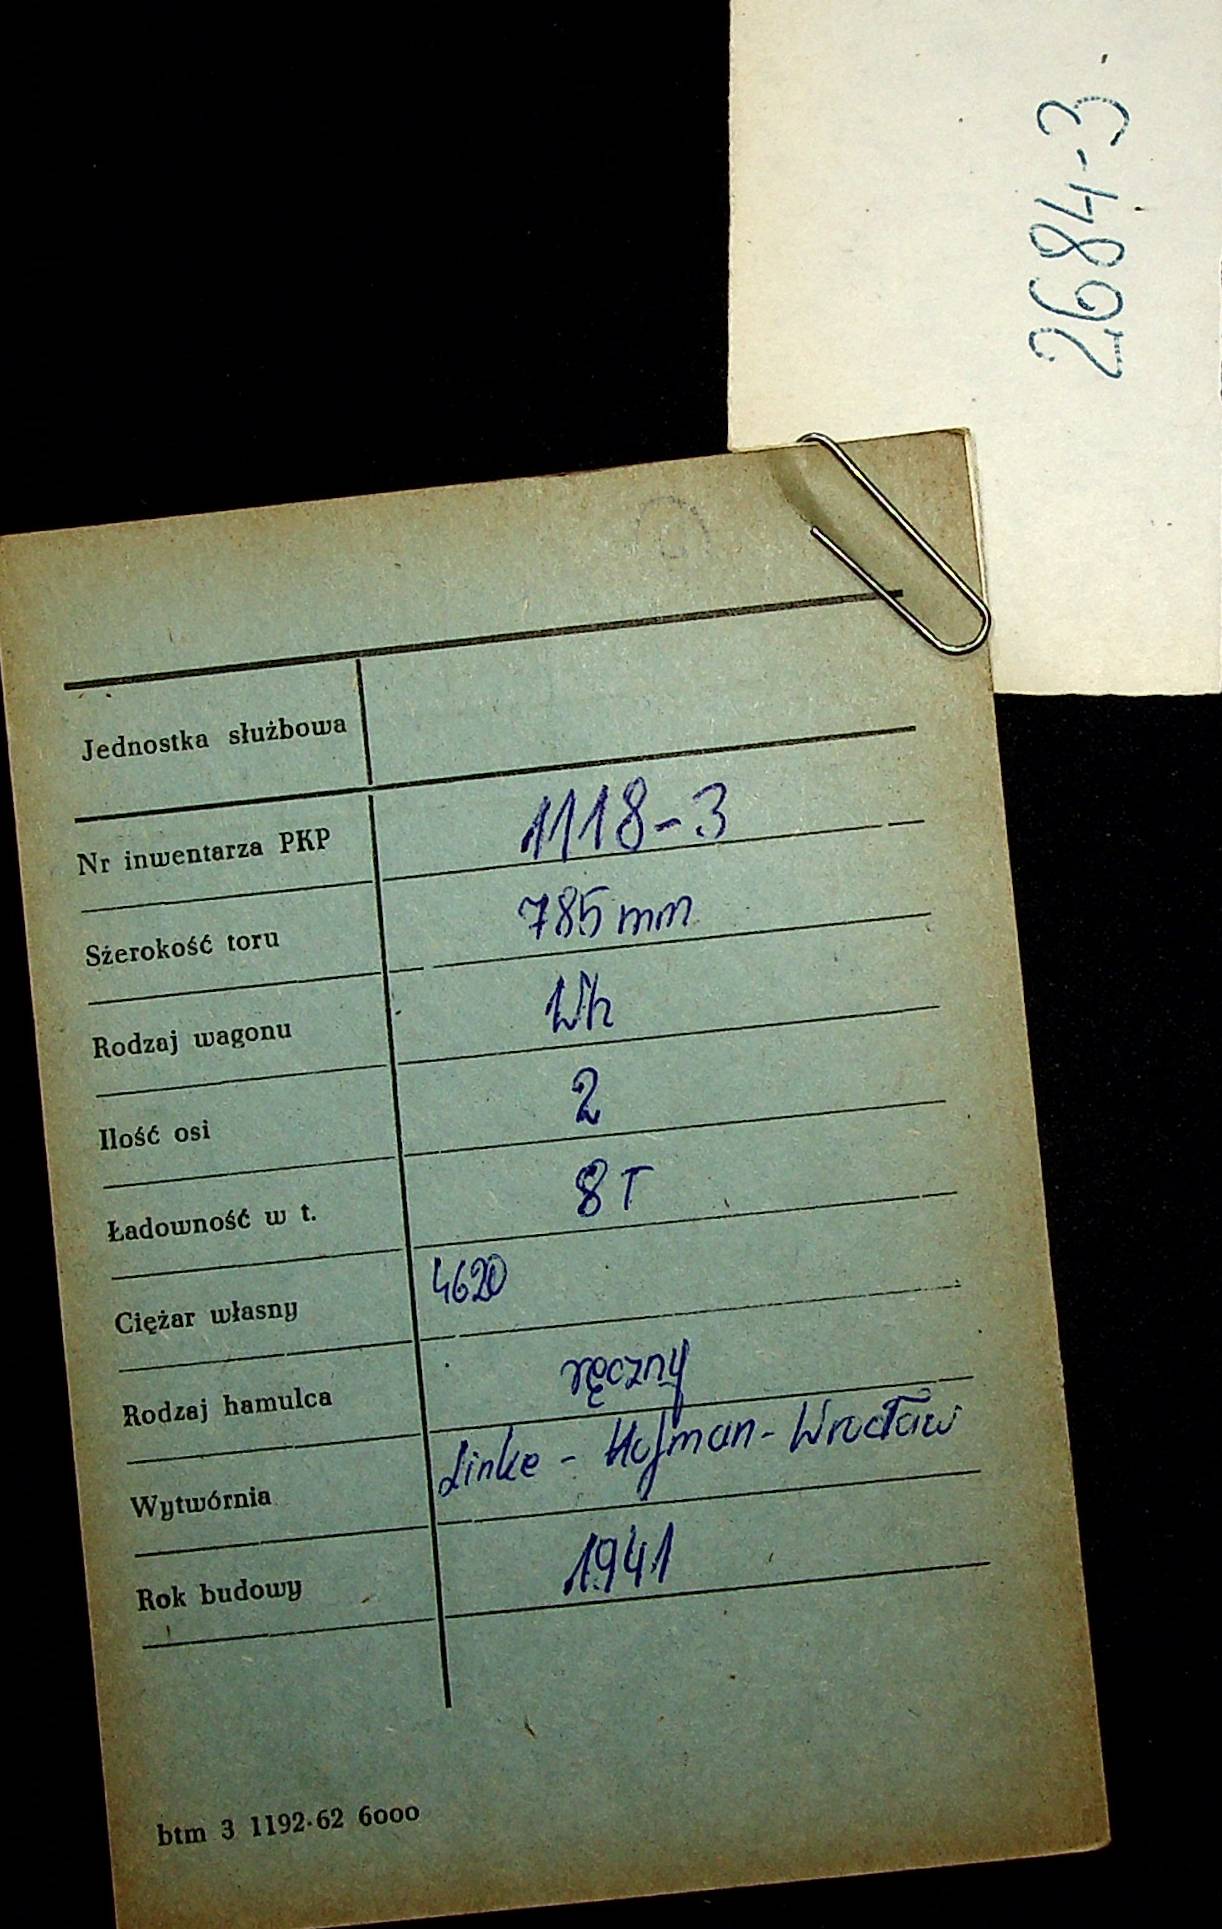 2684-3
Jednostka służbowa
Nr inwentarza PKP 1118-3
Szerokość toru 785 mm
Rodzaj wagonu Wh
Ilość osi 2
Ładowność w t. 8 T
Ciężar własny 4620
Rodzaj hamulca ręczny
Wytwórnia Linke - Hofman - Wrocław
Rok budowy 1941
btm 3 1192·62 6000